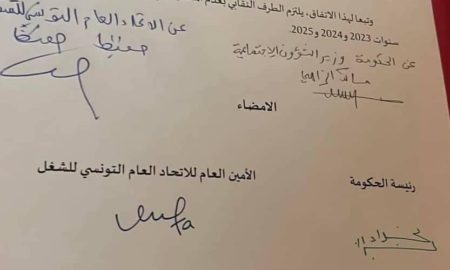 وتبعا لهذا الاتفاق، يلتزم الطرف النقابي بعدم
سنوات 2023 و2024 و2025.
عن الاتحاد العام التونسي للشغل
حفيظ حفيظ
عن الحكومة وزير الشؤون الاجتماعية
مالك الزاهي
الامضاء
الأمين العام للاتحاد العام التونسي للشغل
رئيسة الحكومة